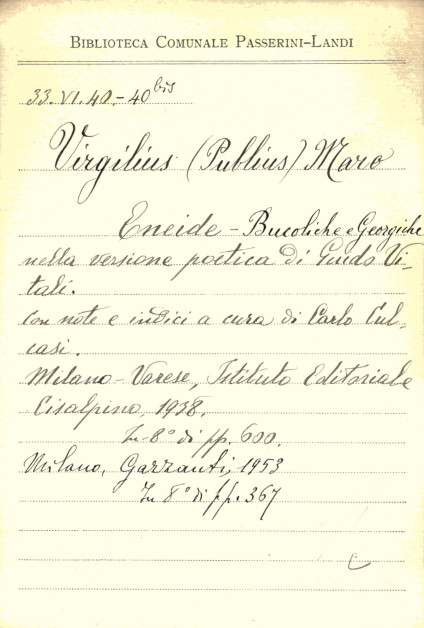 BIBLIOTECA COMUNALE PASSERINI-LANDI
33.VI.40.-40 bis
Virgilius (Publius) Maro
Eneide - Bucoliche e Georgiche
nella versione poetica di Guido Vi-
tali.
Con note e indici a cura di Carlo Cul-
casi.
Milano-Varese, Istituto Editoriale
Cisalpino, 1938.
In-8° di pp. 600.
Milano, Garzanti, 1953
In 8° di pp. 367
C